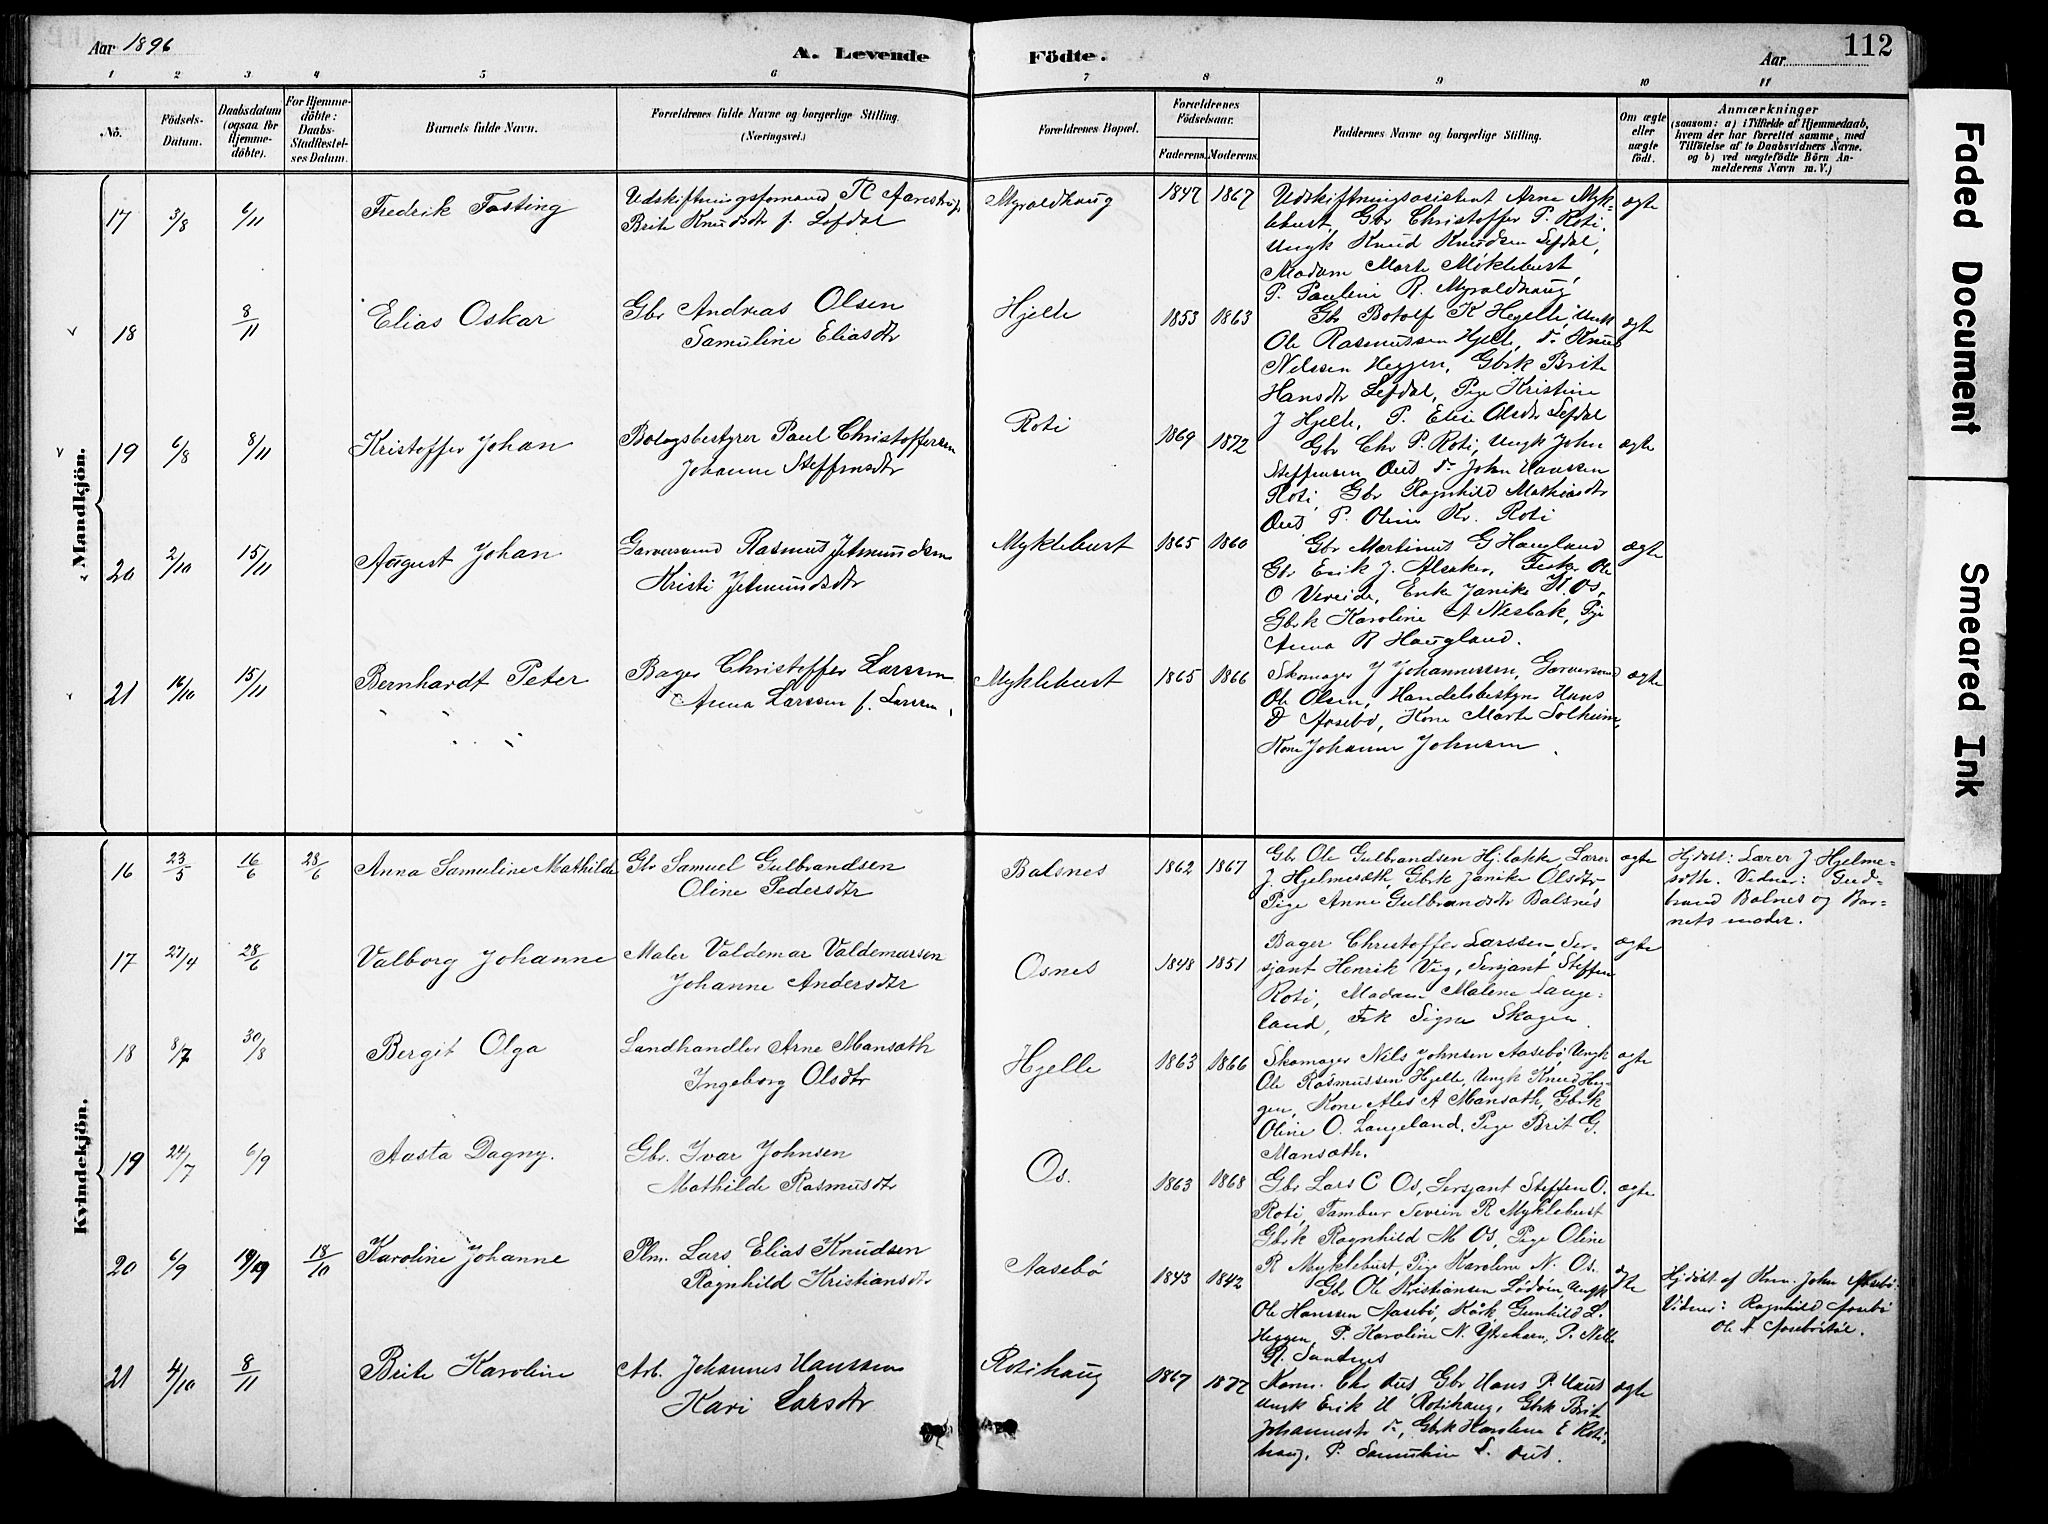 Aar 1896
A. Levende Födte.
Aar
112
1 2 3 4 5 6 7 8 9 10 11
No.
Födsels-Datum.
Daabsdatum (ogsaa for Hjemme-döbte).
For Hjemme-döbte: Daabs-Stadfæstel-ses Datum.
Barnets fulde Navn.
Forældrenes fulde Navne og borgerlige Stilling. (Næringsvei.)
Forældrenes Bopæl.
Forældrenes Födselsaar.
Faderens. Moderens.
Faddernes Navne og borgerlige Stilling.
Om ægte eller uægte födt.
Anmærkninger
(saasom: a) i Tilfælde af Hjemmedaab, hvem der har forrettet samme, med Tilföielse af to Daabsvidners Navne. og b) ved uægtefödte Börn An-melderens Navn m. V.)
Mandkjön.
17 3/8 6/11 Fredrik Fasting
Udskiftningsformand TC
Brite Knudsdtr f. Lefdal
Myroldhaug 1847 1867
Udskiftningsasistent Arne Myk-
lebust, Gbr Christoffer P. Roti,
Ungk Knud Knudsen Lefdal,
Madam Marte Möklebust,
P. Pauline R. Myroldhaug
ægte
18 8/11 Elias Oskar
Gbr Andreas Olsen
Samuline Eliasdtr
Hjelle 1853 1863
Gbr Botolf K Hjelle, Ungk
Ole Rasmussen Hjelle, do Knud
Nelssen Heggen, Gbrk Brite
Hansdtr Lefdal, Pige Kristine
J Hjelle, P. Elie Olsdtr Lefdal
ægte
19 6/8 8/11 Kristoffer Johan
Bolagsbestyrer Paul Christoffersen
Johanne Steffensdtr
Roti 1869 1872
Gbr Chr P. Roti, Ungk John
Steffensen Aus do John Hanssen
Roti, Gbr Ragnhild Mathiasdtr
P. Oline Kr. Roti
ægte
20 2/10 15/11 August Johan
Garversvend Rasmus Jetmundsen
Kristi Jetmundsdtr
Myklebust 1865 1860
Gbr Martinus G Haugland
Gbr Erik J. Alsaker, Ole
O Vereide, Enke Janike H. Os,
Gbrk Karoline A Nesbak, Pige
Anna R Haugland.
ægte
21 16/10 15/11 Bernhardt Peter
Bager Christoffer Larssen
Anna Larssen f. Larssen,
Myklebust 1865 1866
Skomager J Johannessen, Garversvend
Ole Olsen, Handelsbestyrer Hans
D Aasebö, Kone Marte Solheim,
Kone Johanne Johnsen.
ægte
Kvindekjön.
16 23/5 16/6 28/6 Anna Samuline Mathilde
Gbr Samuel Gulbrandsen
Oline Pedersdtr
Balsnes 1862 1867
Gbr Ole Gulbrandsen Hjelakke, Lærer
J. Hjelmesæth Gbrk Janike Olsdtr,
Pige Anne Gulbrandsdtr Balsnes
ægte
Hjdöbt: Lærer J Hjelme-
sæth. Vidner: Gud-
brand Balnes og Bar-
nets moder.
17 27/4 28/6 Valborg Johanne
Maler Valdemar Valdemarsen
Johanne Andersdtr
Osnes 1848 1851
Bager Christoffer Larssen, Ser-
sjant Henrik Vig, Sersjant Steffen
Roti, Madam Malene Lange-
land, Frk Signe Skagen.
ægte
18 8/7 30/8 Bergit Olga
Landhandler Arne Mansæth
Ingeborg Olsdtr
Hjelle 1863 1866
Skomager Nils Johnsen Aasebö, Ungk
Ole Rasmussen Hjelle, Ungk Knud Heg-
gen, Kone Ales A Mansæth, Gbrk
Oline O. Langeland, Pige Brit G.
Mansæth.
ægte
19 24/7 6/9 Aasta Dagny.
Gbr. Ivar Johnsen
Mathilde Rasmusdtr
Os. 1863 1868
Gbr Lars C Os, Sersjant Steffen O.
Roti, Tambur Severin R Myklebust
Gbrk Ragnhild M Os, Pige Oline
R Myklebust, Pige Karoline N. Os.
ægte
20 6/9 18/10 Karoline Johanne
Plm. Lars Elias Knudsen
Ragnhild Kristiansdtr
Aasebö 1843 1842
Gbr Ole Kristiansen Lödöen, Ungk
Ole Hanssen Aasebö, Kårk Gunhild L.
Heggen, P. Karoline N. Ytrehorn, P.
R. Sandnes
ægte
Hjdöbt af Knn. John Aasebö.
Vidner: Ragnhild Aasebö
Ole A Aaseböstöl.
21 4/10 8/11 Brite Karoline
Arb. Johannes Hanssen
Kari Larsdtr
Rotihaug 1867 1877
Chr Aus Gbr Hans P. Aus
Ungk Erik H Rotihaug, Gbrk Brite
Johannesdtr do, Gbrk Karoline E Roti-
haug, P. Samuline S. Aus.
ægte
Faded Document
Smeared Ink